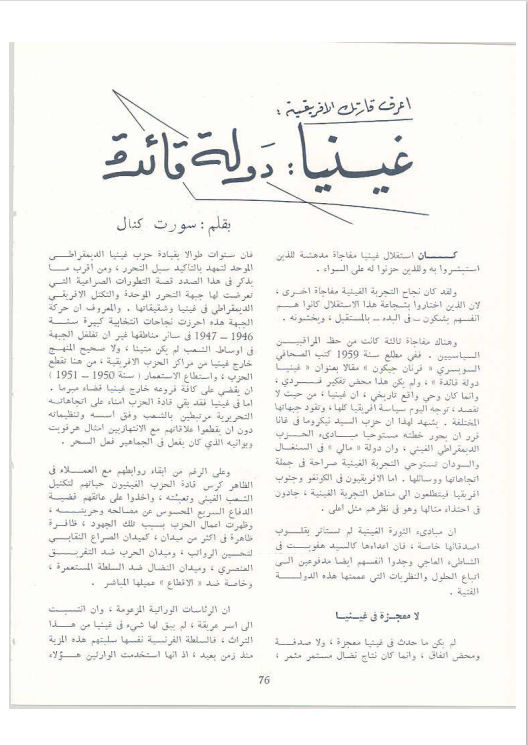 اعرف قارتك الافريقية :
غينيا : دولة قائدة
بقلم : سورت كنال
كــــان استقلال غينيا مفاجأة مدهشة للذين
استبشروا به وللذين حزنوا له على السواء .
ولقد كان نجاح التجربة الغينية مفاجأة اخرى ،
لان الذين اختاروا بشجاعة هذا الاستقلال كانوا هم
انفسهم يشكون ــ في البدء ــ بالمستقبل ، ويخشونه .
وهناك مفاجأة ثالثة كانت من حظ المراقبين
السياسيين . ففي مطلع سنة 1959 كتب الصحافي
السويسري « فرنان جيكون » مقالا بعنوان « غينيا
دولة قائدة » ، ولم يكن هذا محض تفكير فردي ،
وانما كان وحي واقع تاريخي ، ان غينيا ، من حيث لا
تقصد ، توجه اليوم سياسة افريقيا كلها ، وتقود جبهاتها
المختلفة . يشهد لهذا ان حزب السيد نيكروما في غانا
قرر ان يحور خطته مستوحيا مبادىء الحزب
الديمقراطي الغيني ، وان دولة « مالي » في السنغال
والسودان تستوحي التجربة الغينية صراحة في جملة
اتجاهاتها ووسائلها . اما الافريقيون في الكونغو وجنوب
افريقيا فيتطلعون الى مناهل التجربة الغينية ، جادون
في احتذاء مثالها وهو في نظرهم مثل اعلى .
ان مبادىء الثورة الغينية لم تستأثر بقلوب
اصدقائها خاصة ، فان اعداءها كالسيد هفويت في
الشاطىء العاجي وجدوا انفسهم ايضا مدفوعين الى
اتباع الحلول والنظريات التي عممتها هذه الدولة
الفتية .
لا معجزة في غينيا
لم يكن ما حدث في غينيا معجزة ، ولا صدفة
ومحض اتفاق ، وانما كان نتاج نضال مستمر مثمر ،
فان سنوات طوالا بقيادة حزب غينيا الديمقراطي
الموحد لتمهد بالتأكيد سبل التحرر ، ومن اقرب ما
يذكر في هذا الصدد قصة التطورات الصراعية التي
تعرضت لها جبهة التحرر الموحدة والتكتل الافريقي
الديمقراطي في غينيا وشقيقاتها . والمعروف ان حركة
الجبهة هذه احرزت نجاحات انتخابية كبيرة سنة
1946 – 1947 في سائر مناطقها غير ان تغلغل الجبهة
في اوساط الشعب لم يكن متينا ، ولا صحيح المنهج
خارج غينيا من مراكز الحزب الافريقية ، من هنا تقطع
الحزب ، واستطاع الاستعمار ( سنة 1950 – 1951 )
ان يقضي على كافة فروعه خارج غينيا قضاء مبرما .
اما في غينيا فقد بقي قادة الحزب امناء على اتجاهاته
التحريرية مرتبطين بالشعب وفق اسسه وتنظيماته
دون ان يقطعوا علاقاتهم مع الانتهازيين امثال هرفويت
وبوانيه الذي كان يفعل في الجماهير فعل السحر .
وعلى الرغم من ابقاء روابطهم مع العملاء في
الظاهر كرس قادة الحزب الغينيون حياتهم لتكتيل
الشعب الغيني وتعبئته ، واخذوا على عاتقهم قضية
الدفاع السريع المحسوس عن مصالحه وحريته ،
وظهرت اعمال الحزب بسبب تلك الجهود ، ظافرة
ظاهرة في اكثر من ميدان ، كميدان الصراع النقابي
لتحسين الرواتب ، وميدان الحرب ضد التفريق
العنصري ، وميدان النضال ضد السلطة المستعمرة ،
وخاصة ضد « الاقطاع » عميلها المباشر .
ان الرئاسات الوراثية المزعومة ، وان انتسبت
الى اسر عريقة ، لم يبق لها شيء في غينيا من هذا
التراث ، فالسلطة الفرنسية نفسها سلبتهم هذه المزية
منذ زمن بعيد ، اذ انها استخدمت الوارثين هؤلاء
76